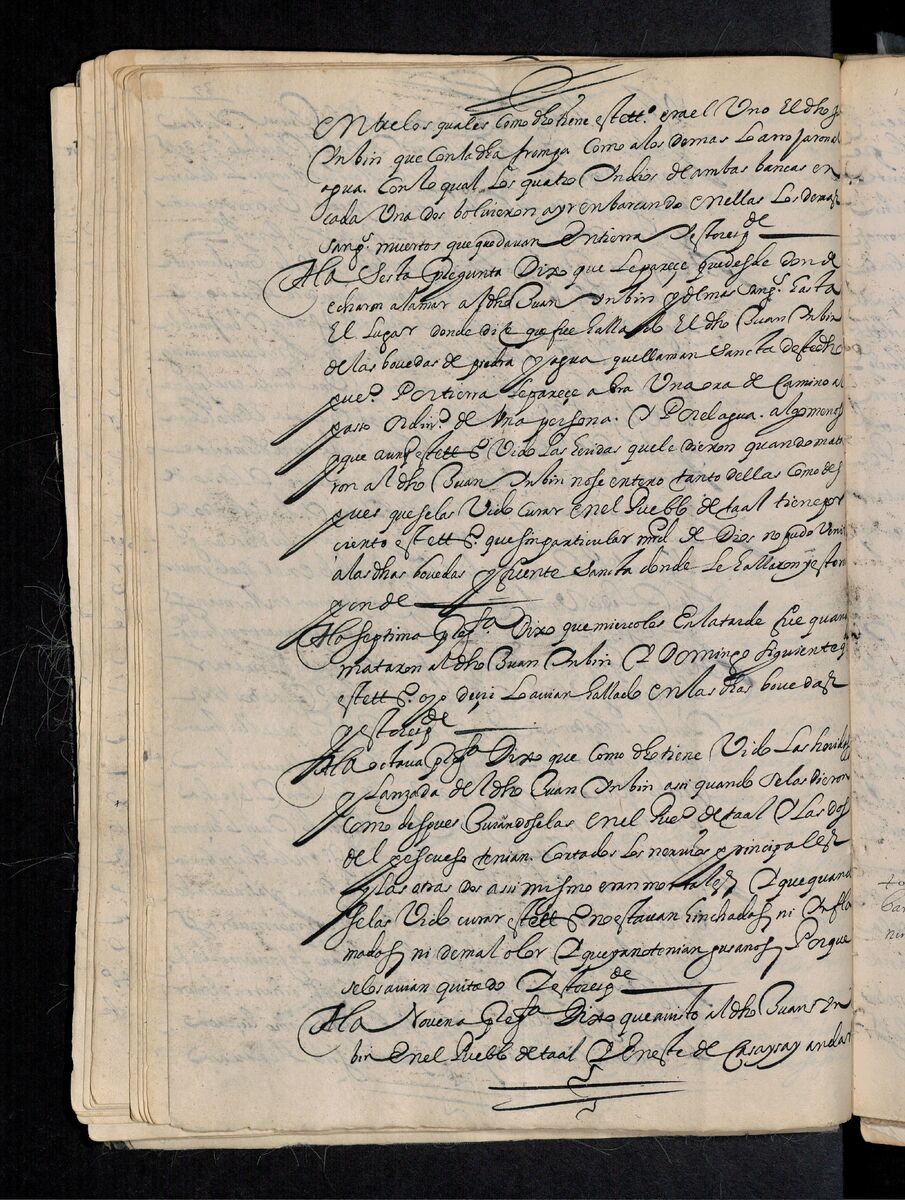 entre los quales como dho tiene este tt.º era el Uno El dho Ju
Inbin que con la dha fromga como a los demas lo arrojaron al
agua. Con lo qual los quatro Indios de ambas bancas en
cada Una dos bolvieron a yr enbarcando en ellas Los demas
sang.s muertos que quedavan En tierra y esto resp.de
A la Sesta Pregunta Dixo que Le pareçe que desde donde
echaron a la mar al dho Juan Inbin y demas sang.s hasta
El Lugar donde dize que fue hallado El dho Juan Inbin
de las bouedas de piedra y agua que llaman Sancta de este dho
pue.º Por tierra le pareçe abra Una ora de Camino al
paso ordin.º de Una persona. Y Por el agua. algo menos
y que aunq este tt.º Vido las heridas que le dieron quando mata
ron al dho Juan Inbin no se entero tanto dellas como des
pues que se las Vido curar en el Pueblo de taal tiene por
cierto este tt.º que sin particular mrd de Dios no pudo venir
a las dhas bouedas y fuente Sancta donde Le hallaron y esto res
ponde
A la septima preg.ta Dixo que miercoles En la tarde fue quan
mataron al dho Juan Inbin Y Domingo siguiente q
este tt.º oyo decir Lo avian hallado en las dhas bouedas
y esto resp.de
A la octava preg.ta Dixo que como dho tiene Vido las heridas
y Lanzada del dho Juan Inbin asi quando se las dieron
como despues Curandoselas en el Pue.º de taal Y Las dos
del pescueso tenian Cortados los nervios principales
y las otras dos asi mismo eran mortales Y que quando
se las Vido curar este tt.º no estavan hinchados ni Infla
mados ni de mal olor Y que ya no tenian gusanos Porque
se los avian quitado Y esto resp.de
A la Novena preg.ta Dixo que a visto al dho Juan In
bin En el Pueblo de taal Y En este de Casaysay andar